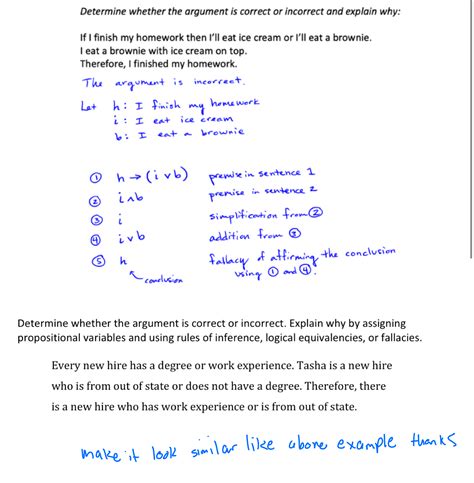 Determine whether the argument is correct or incorrect and explain why:
If I finish my homework then I'll eat ice cream or I'll eat a brownie.
I eat a brownie with ice cream on top.
Therefore, I finished my homework.
The argument is incorrect.
Let h: I finish my homework
i: I eat ice cream
b: I eat a brownie
① h → (i ∨ b) premise in sentence 1
② i ∧ b premise in sentence 2
③ i simplification from ②
④ i ∨ b addition from ③
⑤ h fallacy of affirming the conclusion
conclusion using ① and ④.
Determine whether the argument is correct or incorrect. Explain why by assigning
propositional variables and using rules of inference, logical equivalencies, or fallacies.
Every new hire has a degree or work experience. Tasha is a new hire
who is from out of state or does not have a degree. Therefore, there
is a new hire who has work experience or is from out of state.
make it look similar like above example thanks